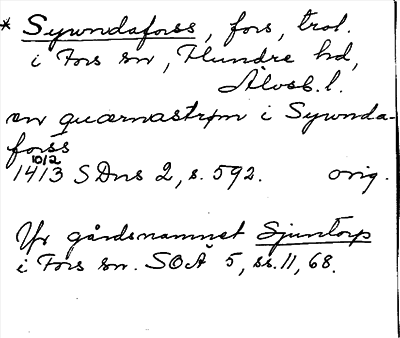 * Sywndaforss, fors, trol.
i Fors sn, Flundre hd,
Älvsb. l.
en quærnastrøm i Sywnda-
forss
10/2
1413 SDns 2, s. 592. orig.
Ur gårdsnamnet Sjuntorp
i Fors sn. SOÄ 5, ss. 11, 68.